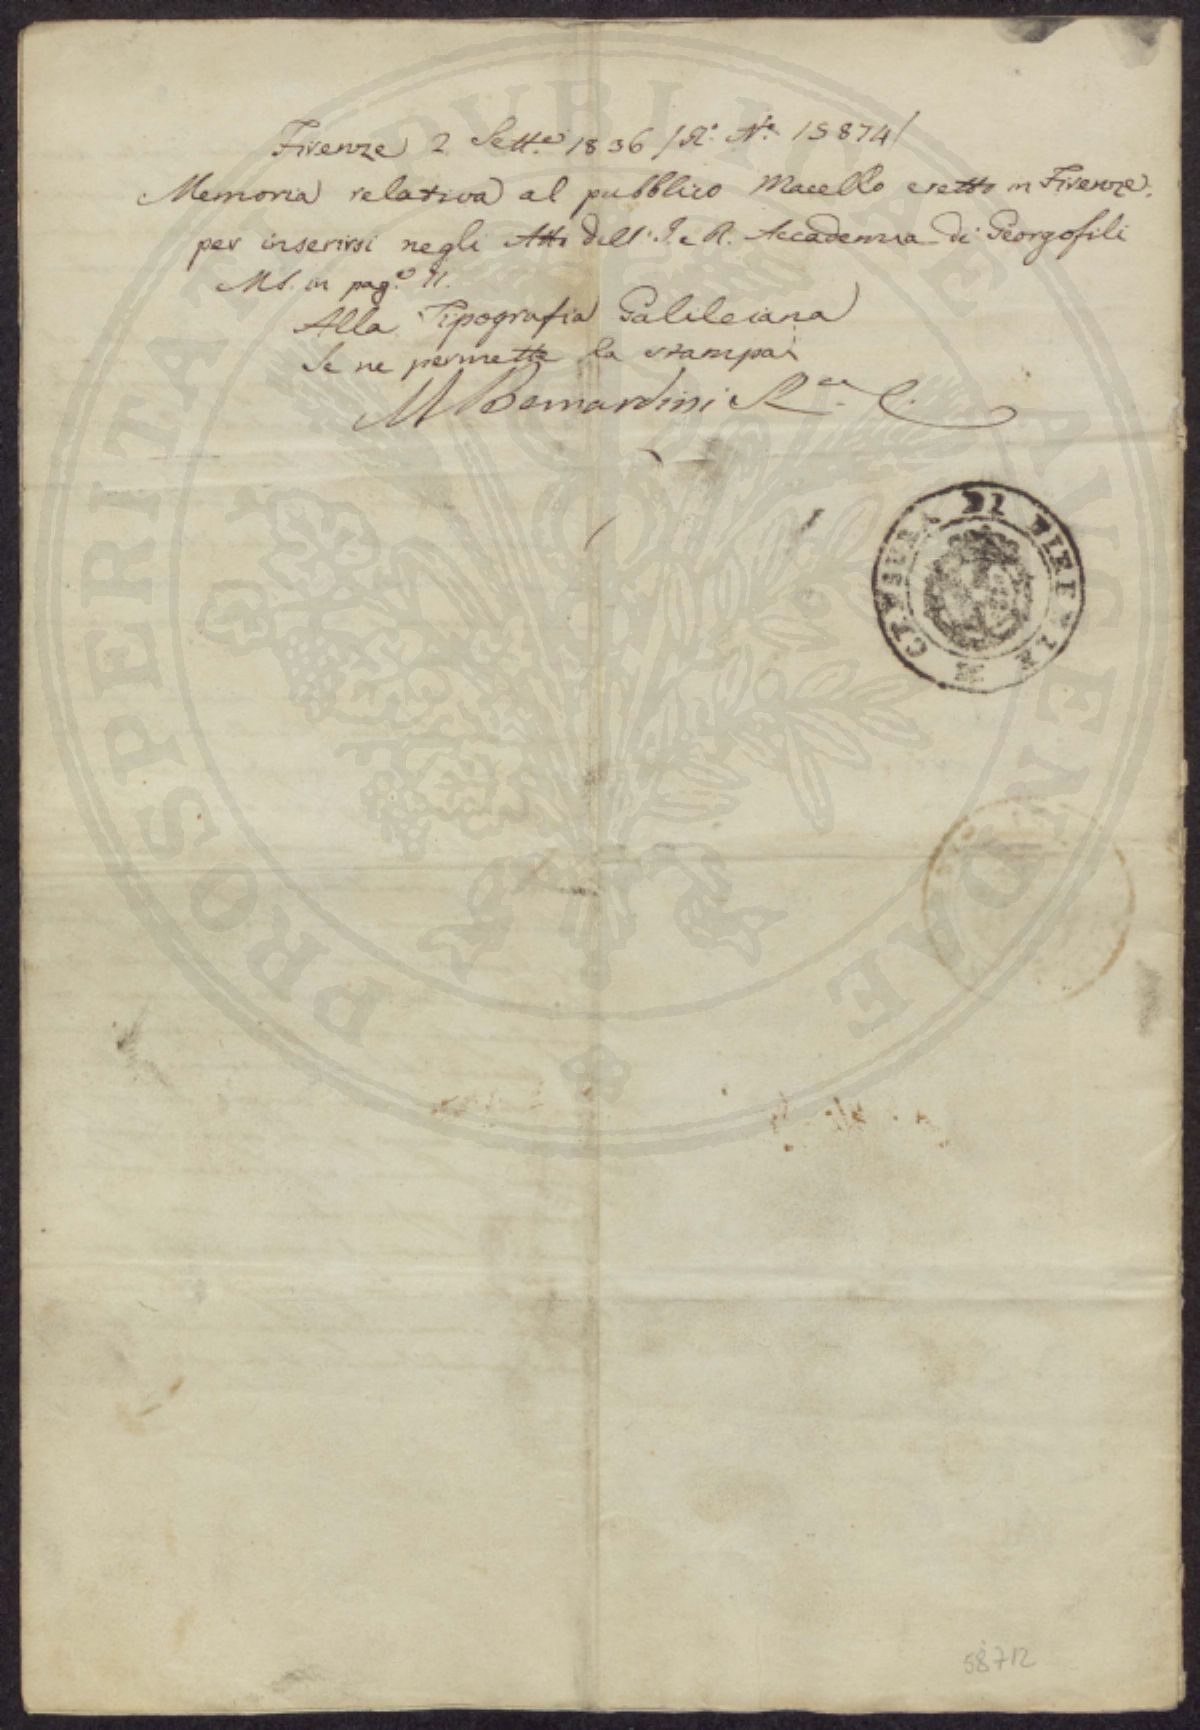 Firenze 2 Sett.e 1836 / R.o N.o 15874 /
Memoria relativa al pubblico Macello eretto in Firenze,
per inserirsi negli Atti dell' I. e R. Accademia de' Georgofili
MS. in pag.e
Alla Tipografia Galileiana
Se ne permette la stampa
M Bernardini R. C.
CENSURA DI FIRENZE
PROSPERITATI PUBLICAE AUGENDAE
58712